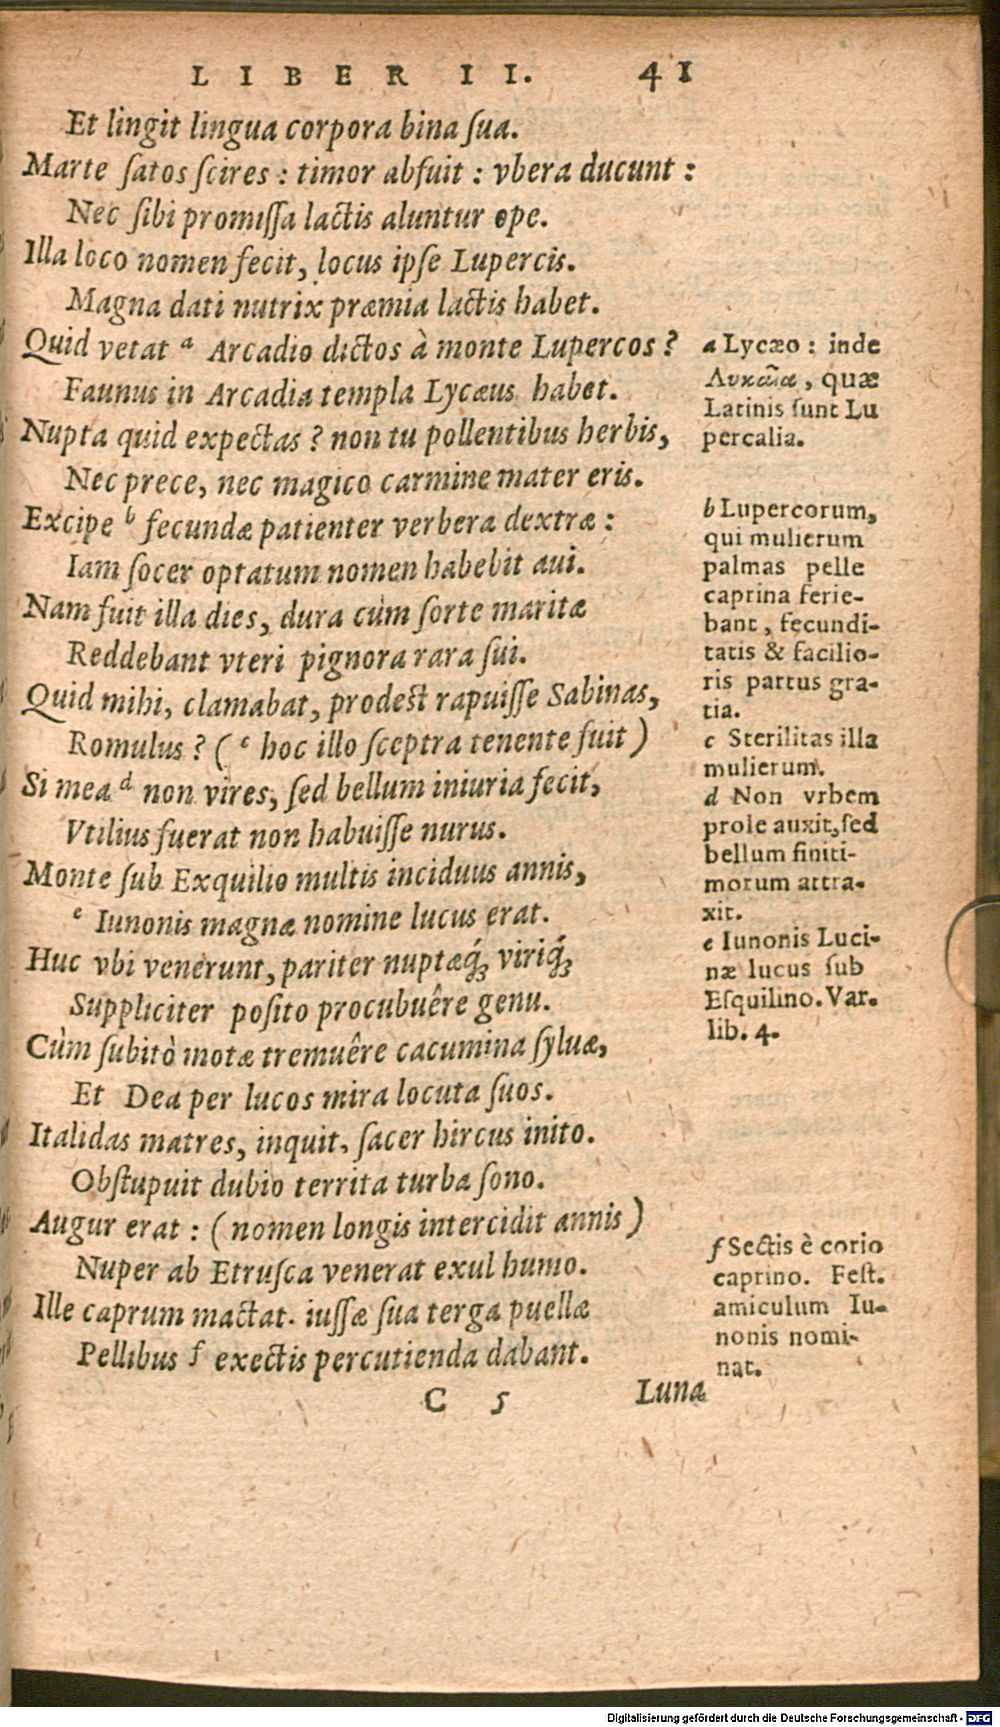 LIBER II. 41
Et lingit lingua corpora bina ſua.
Marte ſatos ſcires : timor abfuit : vbera ducunt :
Nec ſibi promiſſa lactis aluntur ope.
Illa loco nomen fecit, locus ipſe Lupercis.
Magna dati nutrix præmia lactis habet.
Quid vetat a Arcadio dictos à monte Lupercos ?
Faunus in Arcadia templa Lycæus habet.
Nupta quid expectas ? non tu pollentibus herbis,
Nec prece, nec magico carmine mater eris.
Excipe b fecundæ patienter verbera dextræ :
Iam ſocer optatum nomen habebit aui.
Nam fuit illa dies, dura cùm ſorte maritæ
Reddebant vteri pignora rara ſui.
Quid mihi, clamabat, prodest rapuiſſe Sabinas,
Romulus ? ( c hoc illo ſceptra tenente fuit )
Si mea d non vires, ſed bellum iniuria fecit,
Vtilius fuerat non habuiſſe nurus.
Monte ſub Exquilio multis inciduus annis,
e Iunonis magnæ nomine lucus erat.
Huc vbi venerunt, pariter nuptæq́; viriq́;
Suppliciter poſito procubuêre genu.
Cùm ſubitò motæ tremuêre cacumina ſyluæ,
Et Dea per lucos mira locuta ſuos.
Italidas matres, inquit, ſacer hircus inito.
Obſtupuit dubio territa turba ſono.
Augur erat : ( nomen longis intercidit annis )
Nuper ab Etruſca venerat exul humo.
Ille caprum mactat. iuſſæ ſua terga puellæ
Pellibus f exectis percutienda dabant.
C 5 Luna
a Lycæo : inde
Λυκαῖα, quæ
Latinis ſunt Lu
percalia.
b Lupercorum,
qui mulierum
palmas pelle
caprina ferie-
bant, fecundi-
tatis & facilio-
ris partus gra-
tia.
c Sterilitas illa
mulierum.
d Non vrbem
prole auxit, ſed
bellum finiti-
morum attra-
xit.
e Iunonis Luci-
næ lucus ſub
Eſquilino. Var.
lib. 4.
f Sectis è corio
caprino. Feſt.
amiculum Iu-
nonis nomi-
nat.
Digitalisierung gefördert durch die Deutsche Forschungsgemeinschaft - DFG